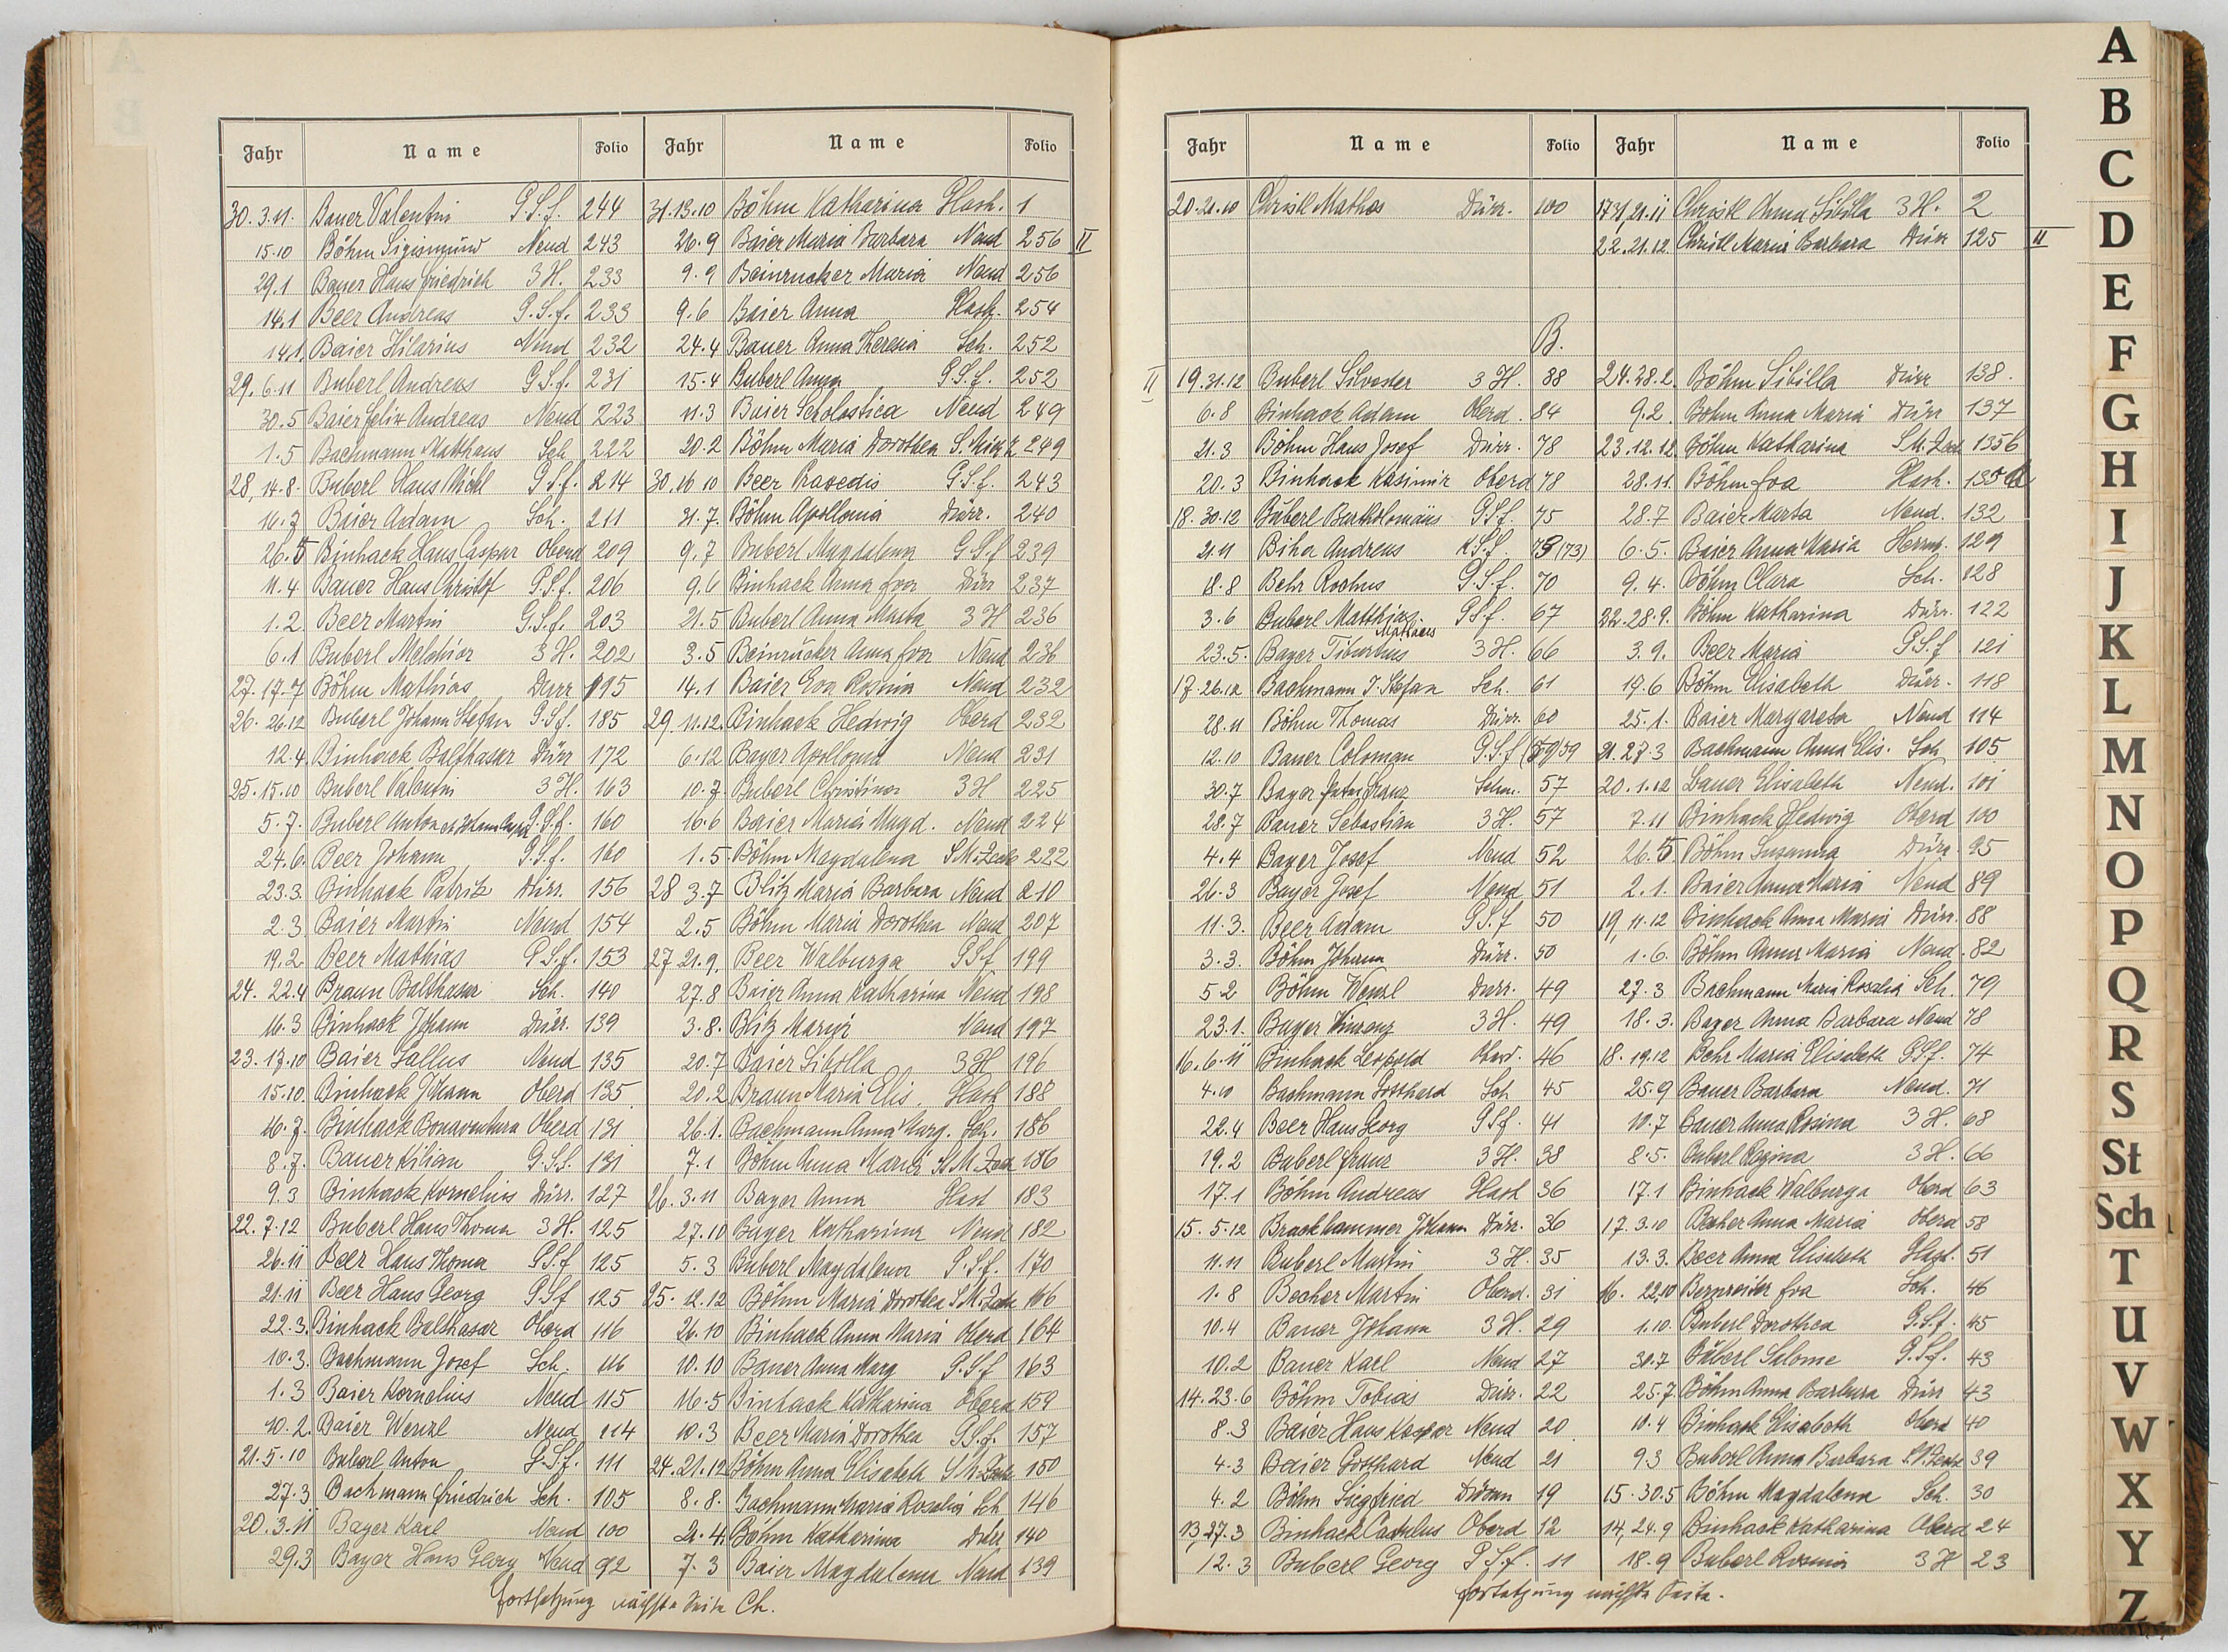 Jahr Name Folio Jahr Name Folio
30. 3.11. Bauer Valentin G.S.f. 244
15.10 Böhm Sigismund Neud 243
29.1 Bauer Hans Friedrich 3 H. 233
14.1 Beer Andreas G.S.f. 233
14.1. Baier Hilarius Neud 232
29. 6.11 Buberl Andreas G.S.f. 231
30.5 Baier Felix Andreas Neud 223
1.5 Bachmann Matthäus Sch 222
28, 14.8. Buberl Hans Michl G.S.f. 214
16.7 Baier Adam Sch. 211
26.5 Binhack Hans Caspar Oberd 209
11.4 Bauer Hans Christof G.S.f. 206
1.2. Beer Martin G.S.f. 203
6.1 Buberl Melchior 3 H. 202
27. 17.7 Böhm Mathias Dürr 195
26. 26.12 Buberl Johann Stefan G.S.f. 185
12.4. Binhack Balthasar Dürr 172
25. 15.10 Buberl Valentin 3 H. 163
5.7. Buberl Anton G.S.f. 160
24.6. Beer Johann G.S.f. 160
23.3. Binhack Patriz Dürr. 156
2.3 Baier Martin Neud 154
19.2. Beer Mathias G.S.f. 153
24. 22.4 Braun Balthasar Sch. 140
16.3 Binhack Johann Dürr. 139
23. 17.10 Baier Gallus Neud 135
15.10. Binhack Johann Oberd 135
16.7. Binhack Bonaventura Oberd 131
8.7. Bauer Kilian G.S.f. 131
9.3 Binhack Kornelius Dürr. 127
22. 7.12 Buberl Hans Thoma 3 H. 125
26.11 Beer Hans Thoma G.S.f 125
21.11 Beer Hans Georg G.S.f 125
22.3. Binhack Balthasar Oberd 116
10.3. Bachmann Josef Sch. 116
1.3 Baier Kornelius Neud 115
10.2. Baier Wenzl Neud 114
21. 5.10 Buberl Anton G.S.f. 111
27.3 Bachmann Friedrich Sch. 105
20. 3.11 Bayer Karl Neud 100
29.3 Bayer Hans Georg Neud 92
31. 13.10 Böhm Katharina Glash. 1
26.9 Baier Maria Barbara Neud 256 II
9.9 Beinrucker Maria Neud 256
9.6 Baier Anna Glash. 254
24.4 Bauer Anna Theresia Sch. 252
15.4 Buberl Anna G.S.f. 252
11.3 Baier Scholastica Neud 249
20.2 Böhm Maria Dorothea 249
30. 16 10 Beer Praxedis G.S.f. 243
31.7. Böhm Apollonia Dürr. 240
9.7 Buberl Magdalena G.S.f 239
9.6 Binhack Anna Eva Dürr 237
21.5 Buberl Anna Marta 3 H 236
3.5 Beinrücker Anna Eva Neud 236
14.1 Baier Eva Rosina Neud 232
29. 11.12. Binhack Hedwig Oberd 232
6.12 Bayer Apollonia Neud 231
10.7. Buberl Christina 3 H 225
16.6 Baier Maria Magd. Neud 224
1.5 Böhm Magdalena S.M.Zech 222
28 3.7 Blitz Maria Barbara Neud 210
2.5 Böhm Maria Dorothea Neud 207
27 21.9. Beer Walburga G.S.f 199
27.8 Baier Anna Katharina Neud 198
3.8. Blitz Maria Neud 197
20.7 Baier Sibilla 3 H. 196
20.2 Braun Maria Elis. Glash 188
26.1. Bachmann Anna Marg. Sch. 186
7.1 Böhm Anna Maria St M. Zech 186
26. 3.11 Bayer Anna Glash 183
27.10 Bayer Katharina Neud 182
5.3 Buberl Magdalena G.S.f. 170
25. 12.12 Böhm Maria Dorothea S M. Zech 166
26.10 Binhack Anna Maria Oberd 164
10.10 Bauer Anna Marg G.S.f 163
16.5 Binhack Katharina Oberd 159
10.3 Beer Maria Dorothea G.S.f. 157
24. 21.12 Böhm Anna Elisabeth S M. Zech 150
8.8. Bachmann Maria Rosalia Sch 146
21.4. Böhm Katharina Dürr 140
7.3 Baier Magdalena Neud 139
Fortsetzung nächste Seite Ch.
Jahr Name Folio Jahr Name Folio
20. 21.10 Christl Mathäs Dürr. 100
1731, 21.11 Christl Anna Sibilla 3 H. 2
22. 21.12. Christl Maria Barbara Dürr 125 II
B.
II 19. 31.12 Buberl Silvester 3 H. 88
6.8 Binhack Adam Oberd. 84
21.3 Böhm Hans Josef Dürr. 78
20.3 Binhack Kasimir Oberd 78
18. 30.12 Buberl Bartholomäus G.S.f. 75
21.11 Biha Andreas K.S.f. 73 (73)
18.8 Behr Rochus G.S.f. 70
3.6 Buberl Matthias G.S.f. 67
Mathäus
23.5. Bayer Tiburtius 3 H. 66
17. 26.12 Bachmann J. Stefan Sch. 61
28.11 Böhm Thomas Dürr. 60
12.10 Bauer Coloman G.S.f (59) 59
30.7 Bayer Peter Franz 57
28.7 Bauer Sebastian 3 H. 57
4.4 Bayer Josef Neud 52
26.3 Bayer Josef Neud 51
11.3. Beer Adam G.S.f 50
3.3. Böhm Johann Dürr. 50
5.2 Böhm Wenzl Dürr. 49
23.1. Bayer Vinzenz 3 H. 49
16. 6.11 Binhack Leopold Oberd. 46
4.10 Bachmann Gotthard Sch 45
22.4 Beer Hans Georg G.S.f. 41
19.2 Buberl Franz 3 H. 38
17.1 Böhm Andreas Glash 36
15. 5.12 Brackhammer Johann Dürr. 36
11.11 Buberl Martin 3 H. 35
1.8 Becher Martin Oberd. 31
10.4 Bauer Johann 3 H. 29
10.2 Bauer Karl Neud 27
14. 23.6 Böhm Tobias Dürr. 22
8.3 Baier Hans Kaspar Neud 20
4.3 Baier Gotthard Neud 21
4.2 Böhm Siegfried 19
13 27.3 Binhack Catulus Oberd 12
12.3 Buberl Georg G.S.f. 11
24. 28.2. Böhm Sibilla Dürr 138.
9.2. Böhm Anna Maria Dürr 137
23. 12.12. Böhm Katharina S.M. Zech 135b
28.11. Böhm Eva Glash. 135
28.7 Baier Marta Neud. 132
6.5. Baier Anna Maria 129
9.4. Böhm Clara Sch. 128
22. 28.9. Böhm Katharina Dürr. 122
3.9. Beer Maria G.S.f 121
19.6 Böhm Elisabeth Dürr. 118
25.1. Baier Margareta Neud 114
21. 27.3 Bachmann Anna Elis. Sch 105
20. 1.12 Bauer Elisabeth Neud. 101
7.11 Binhack Hedwig Oberd 100
26.5 Böhm Susanna Dürr. 95
2.1. Baier Anna Maria Neud 89
19, 11.12 Binhack Anna Maria Dürr. 88
1.6. Böhm Anna Maria Neud. 82
27.3 Bachmann Maria Rosalia Sch. 79
18.3. Bayer Anna Barbara Neud 78
18. 19.12 Behr Maria Elisabeth G.S.f. 74
25.9 Bauer Barbara Neud. 71
10.7 Bauer Anna Rosina 3 H. 68
8.5. Buberl Regina 3 H. 66
17.1 Binhack Walburga Oberd 63
17. 3.10 Becher Anna Maria Oberd 58
13.3. Beer Anna Elisabeth Glash. 51
16. 22.10 Bernreiter Eva Sch. 46
1.10. Buberl Dorothea G.S.f. 45
30.7 Buberl Salome G.S.f. 43
25.7 Böhm Anna Barbara Dürr 43
10.4 Binhack Elisabeth Oberd 40
9.3 Buberl Anna Barbara 39
15. 30.5 Böhm Magdalena Sch. 30
14, 24.9 Binhack Katharina Oberd 24
18.9 Buberl Rosina 3 H 23
Fortsetzung nächste Seite.
A
B
C
D
E
F
G
H
I
J
K
L
M
N
O
P
Q
R
S
St
Sch
T
U
V
W
X
Y
Z